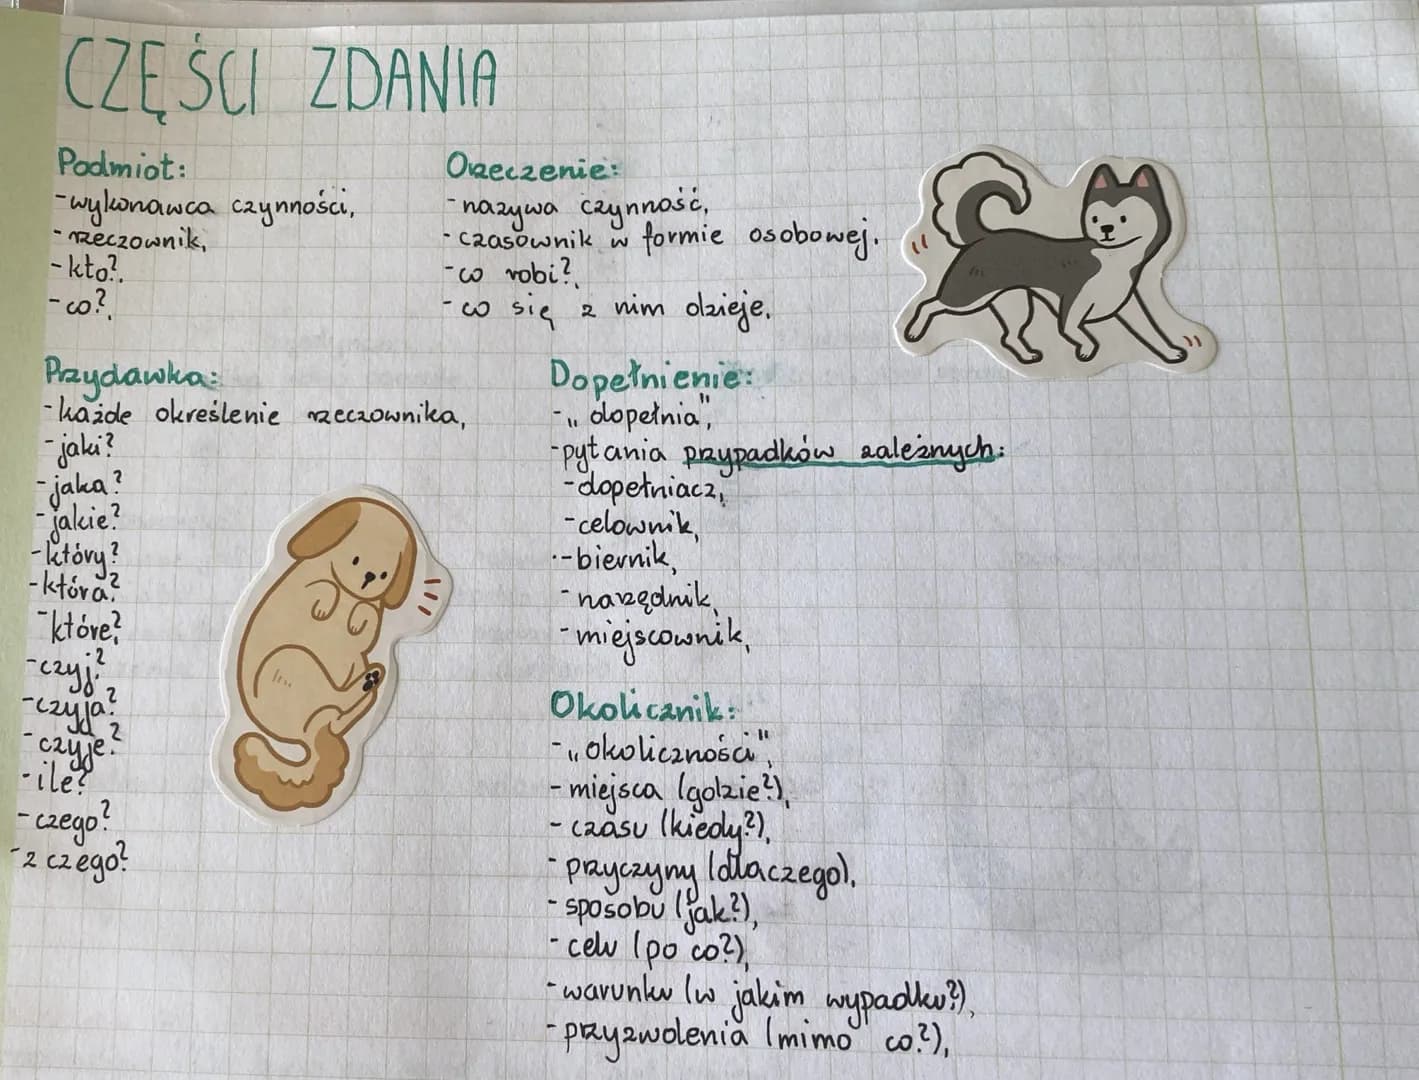 CZĘŚCI ZDANIA
Podmiot:
-wykonawca czynności,
-rzeczownik,
-kto?,
-co?,
Orzeczenie:
-nazywa czynność,
-czasownik w formie osobowej.
-co robi?,
-co się z nim dzieje.
Przydawka:
-każde określenie rzeczownika,
-jaki?
-jaka?
-jakie?
-który?
-która?
-które?
-czyj?
-czyja?
-czyje?
-ile?
-czego?
-z czego?
Dopełnienie:
-„dopełnia",
-pytania przypadków zależnych:
-dopełniacz,
-celownik,
-biernik,
-narzędnik,
-miejscownik,
Okolicznik:
-„okoliczności",
-miejsca (gdzie?),
-czasu (kiedy?),
-przyczyny (dlaczego),
-sposobu (jak?),
-celu (po co?),
-warunku (w jakim wypadku?),
-przyzwolenia (mimo co?),